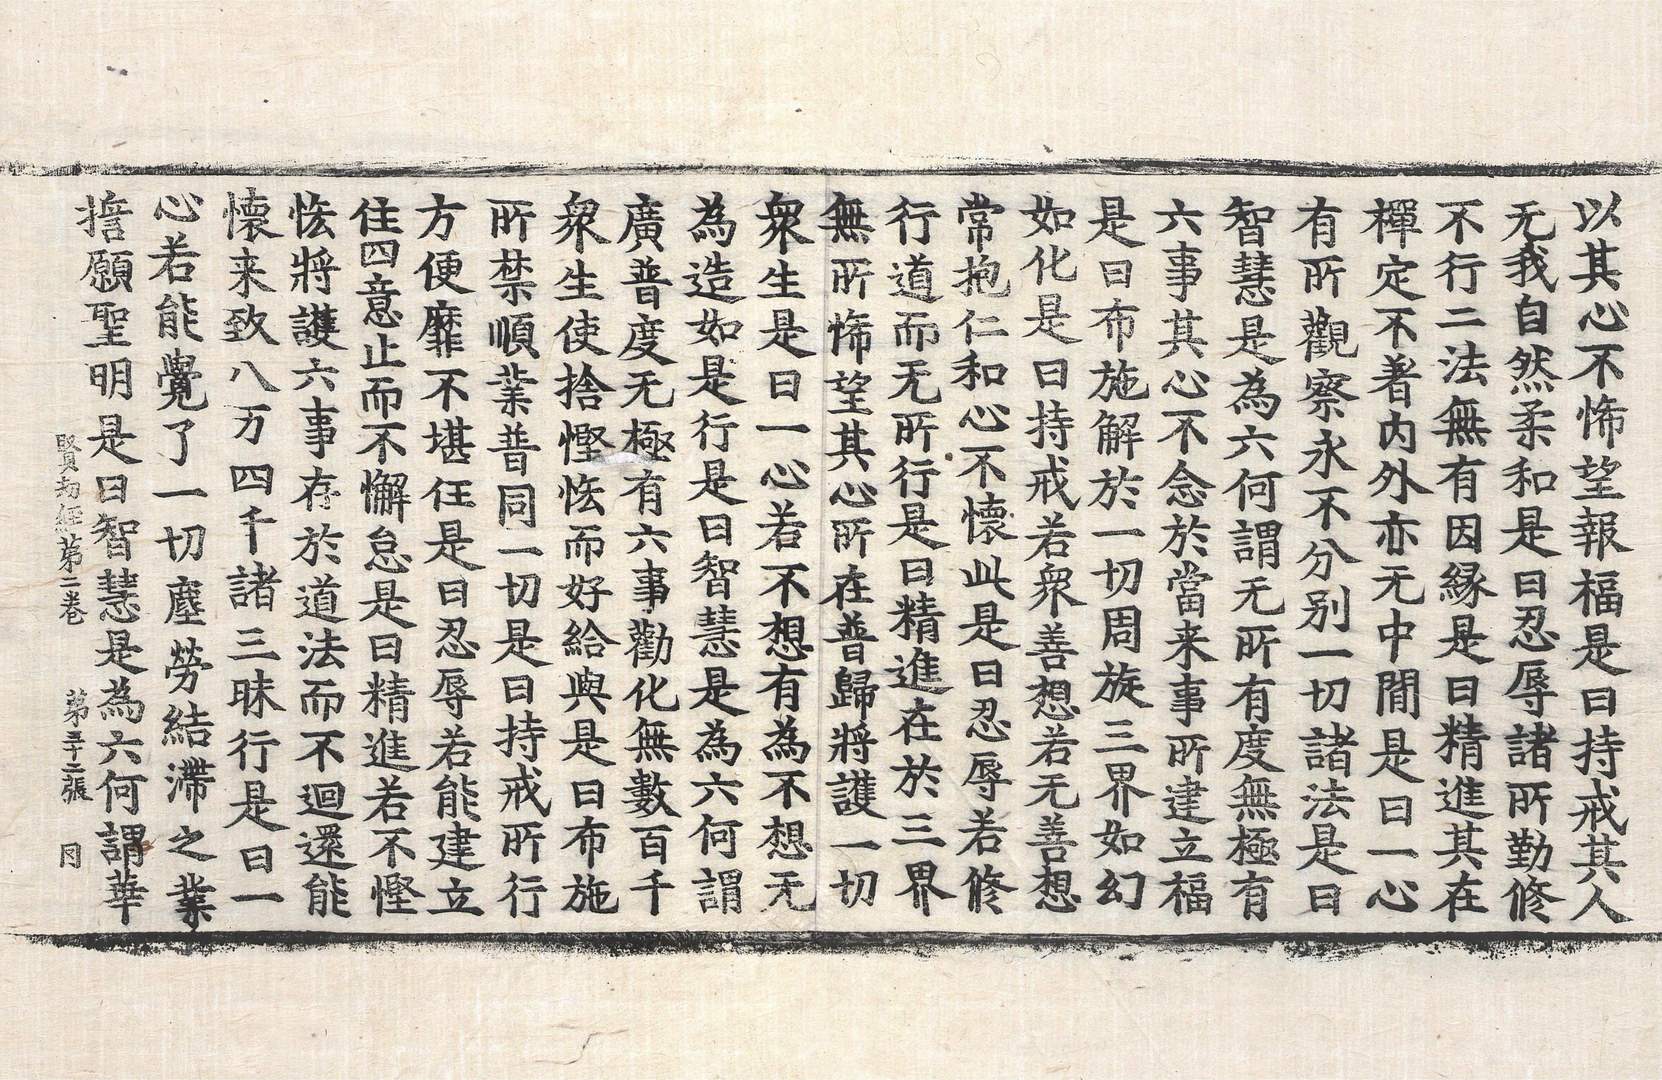 以其心不悕望報福是曰持戒其人
无我自然柔和是曰忍辱諸所勤修
不行二法無有因縁是曰精進其在
禪定不著内外亦无中間是曰一心
有所觀察永不分别一切諸法是曰
智慧是為六何謂无所有度無極有
六事其心不念於當来事所建立福
是曰布施解於一切周旋三界如幻
如化是曰持戒若衆善想若无善想
常抱仁和心不懐此是曰忍辱若修
行道而无所行是曰精進在於三界
無所悕望其心所在普歸將護一切
衆生是曰一心若不想有為不想无
為造如是行是曰智慧是為六何謂
廣普度无極有六事勸化無數百千
衆生使捨慳悋而好給與是曰布施
所禁順業普同一切是曰持戒所行
方便靡不堪任是曰忍辱若能建立
住四意止而不懈怠是曰精進若不慳
悋將護六事存於道法而不迴還能
懐来致八万四千諸三昧行是曰一
心若能覺了一切塵勞結滯之業
擔願聖明是曰智慧是為六何謂華
賢劫經第二卷 第五十二張 同